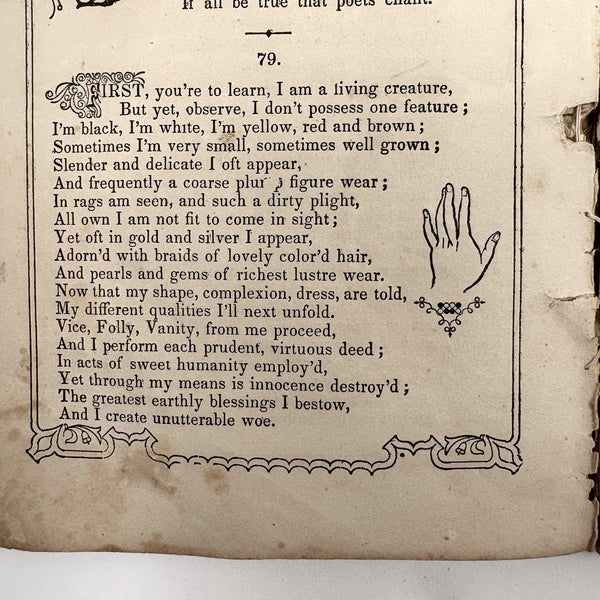 If all be true that poets chant.
79.
FIRST, you're to learn, I am a living creature,
But yet, observe, I don't possess one feature;
I'm black, I'm white, I'm yellow, red and brown;
Sometimes I'm very small, sometimes well grown;
Slender and delicate I oft appear,
And frequently a coarse figure wear;
In rags am seen, and such a dirty plight,
All own I am not fit to come in sight;
Yet oft in gold and silver I appear,
Adorn'd with braids of lovely color'd hair,
And pearls and gems of richest lustre wear.
Now that my shape, complexion, dress, are told,
My different qualities I'll next unfold.
Vice, Folly, Vanity, from me proceed,
And I perform each prudent, virtuous deed;
In acts of sweet humanity employ'd,
Yet through my means is innocence destroy'd;
The greatest earthly blessings I bestow,
And I create unutterable woe.